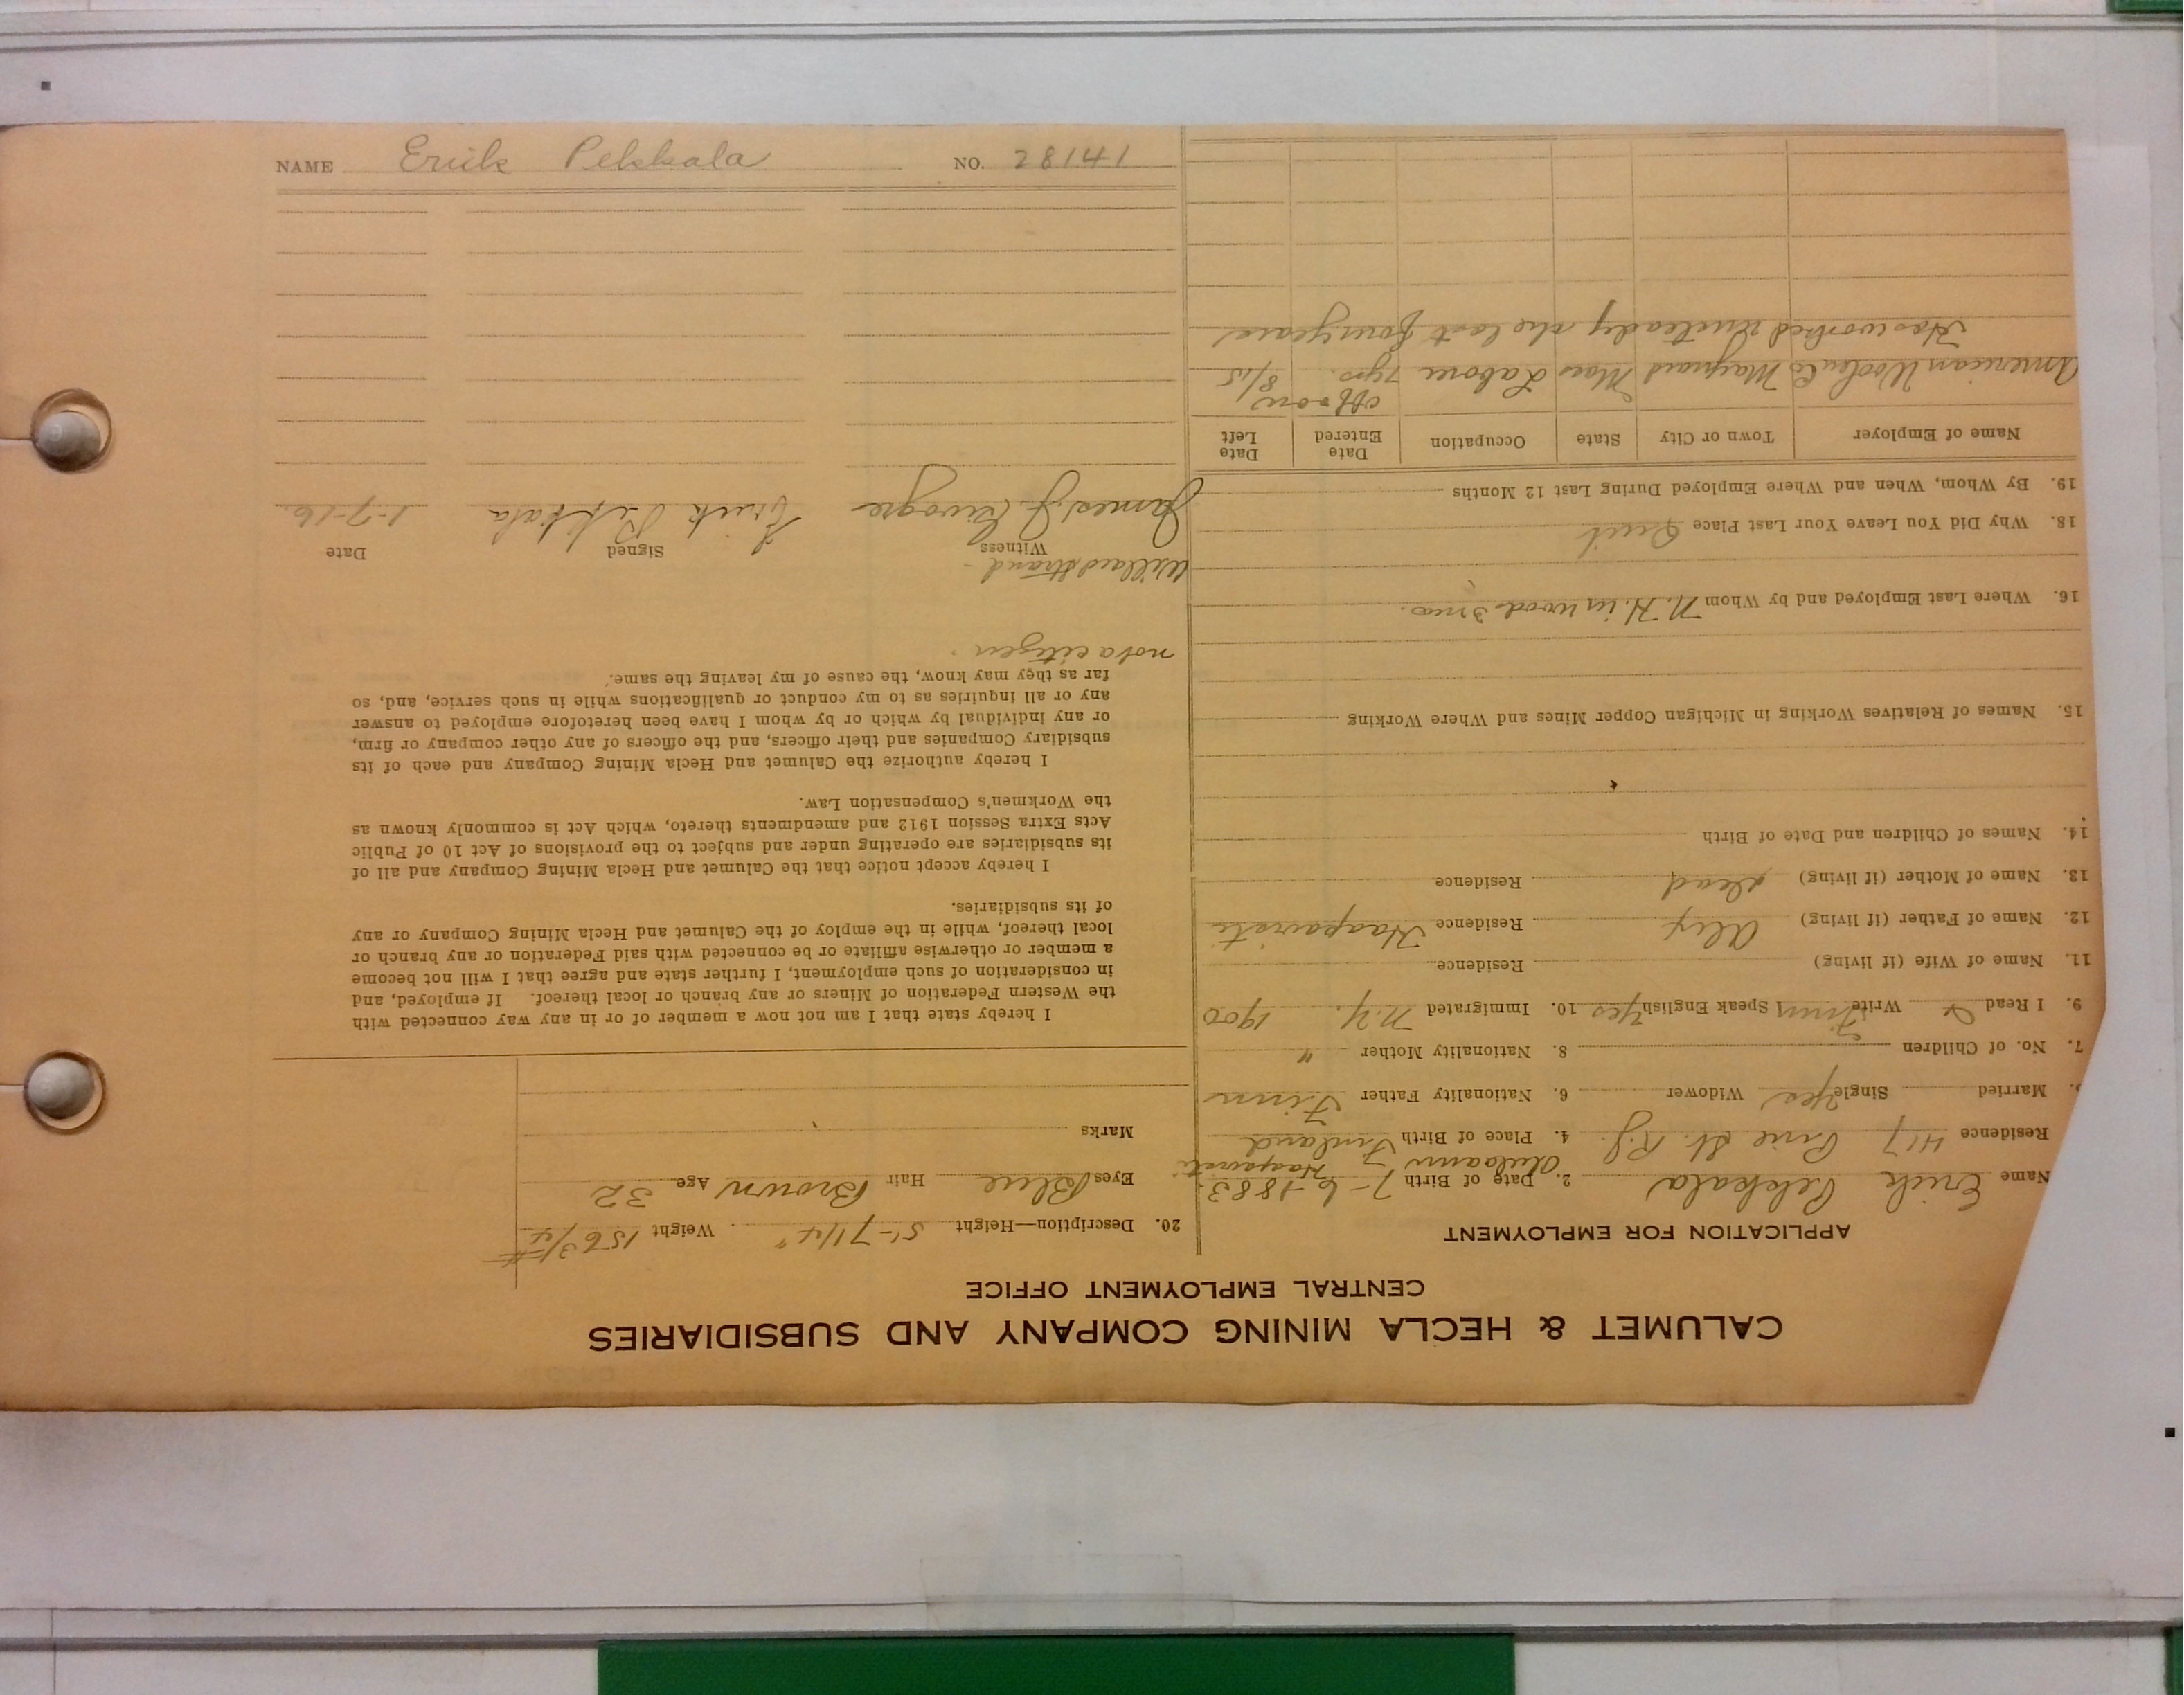 CALUMET & HECLA MINING COMPANY AND SUBSIDIARIES
CENTRAL EMPLOYMENT OFFICE
APPLICATION FOR EMPLOYMENT
Name Erick Pekkala 2. Date of Birth 7-6-1883
Residence 417 Pine St. R.J. 4. Place of Birth Finland
Married Single Yes Widower 6. Nationality Father Finn
7. No. of Children 8. Nationality Mother "
9. I Read & Write Finn Speak English Yes 10. Immigrated N.Y. 1900
11. Name of Wife (if living) Residence
12. Name of Father (if living) Alex Residence Haapavesi
13. Name of Mother (if living) dead Residence
14. Names of Children and Date of Birth
15. Names of Relatives Working in Michigan Copper Mines and Where Working
16. Where Last Employed and by Whom N.H. in wood 3 mos.
18. Why Did You Leave Your Last Place Quit
19. By Whom, When and Where Employed During Last 12 Months
Name of Employer Town or City State Occupation Date Entered Date Left
off & on
American Woolen Co Maynard Mass Laborer 7 yrs. 8/15
Has worked unsteady the last four years
20. Description—Height 5'-7 1/4" Weight 156 3/4 #
Eyes Blue Hair Brown Age 32
Marks
I hereby state that I am not now a member of or in any way connected with
the Western Federation of Miners or any branch or local thereof. If employed, and
in consideration of such employment, I further state and agree that I will not become
a member or otherwise affiliate or be connected with said Federation or any branch or
local thereof, while in the employ of the Calumet and Hecla Mining Company or any
of its subsidiaries.
I hereby accept notice that the Calumet and Hecla Mining Company and all of
its subsidiaries are operating under and subject to the provisions of Act 10 of Public
Acts Extra Session 1912 and amendments thereto, which Act is commonly known as
the Workmen's Compensation Law.
I hereby authorize the Calumet and Hecla Mining Company and each of its
subsidiary Companies and their officers, and the officers of any other company or firm,
or any individual by which or by whom I have been heretofore employed to answer
any or all inquiries as to my conduct or qualifications while in such service, and, so
far as they may know, the cause of my leaving the same.
not a citizen.
Witness Signed Date
James J. Erick Pekkala 1-7-16
NAME Erick Pekkala NO. 28141